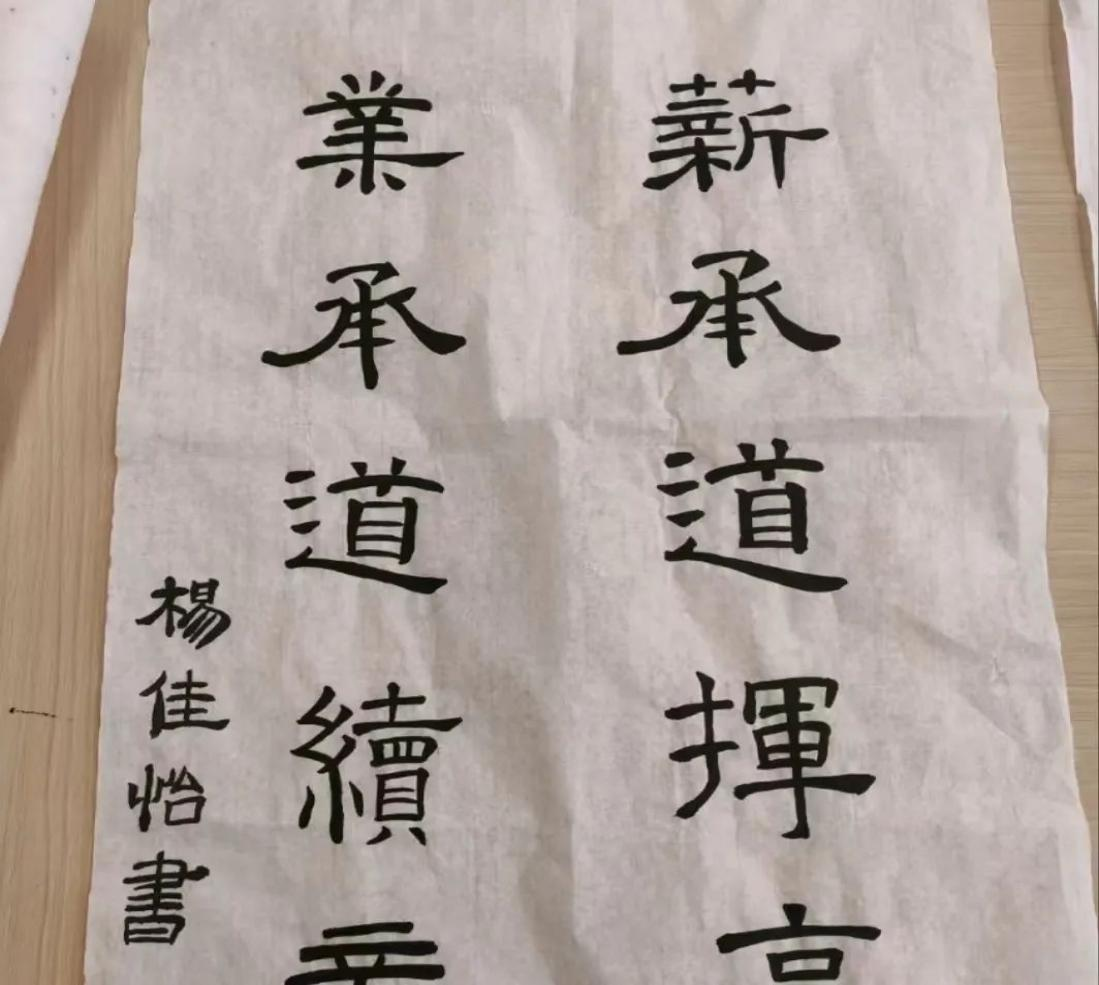 薪承道揮
業承道續
楊佳怡書